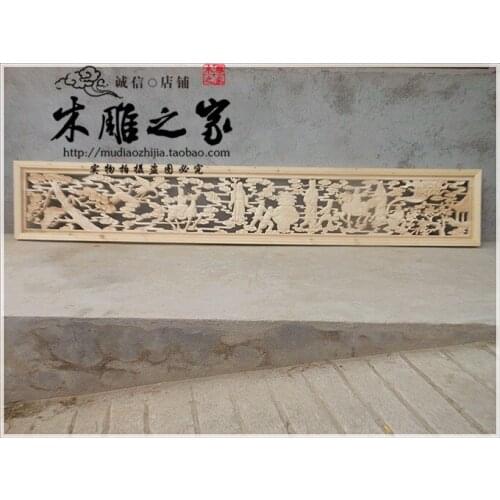 诚信○店铺
木雕之家
http://mudiaozhijia.taobao.com
实物拍摄盗图必究